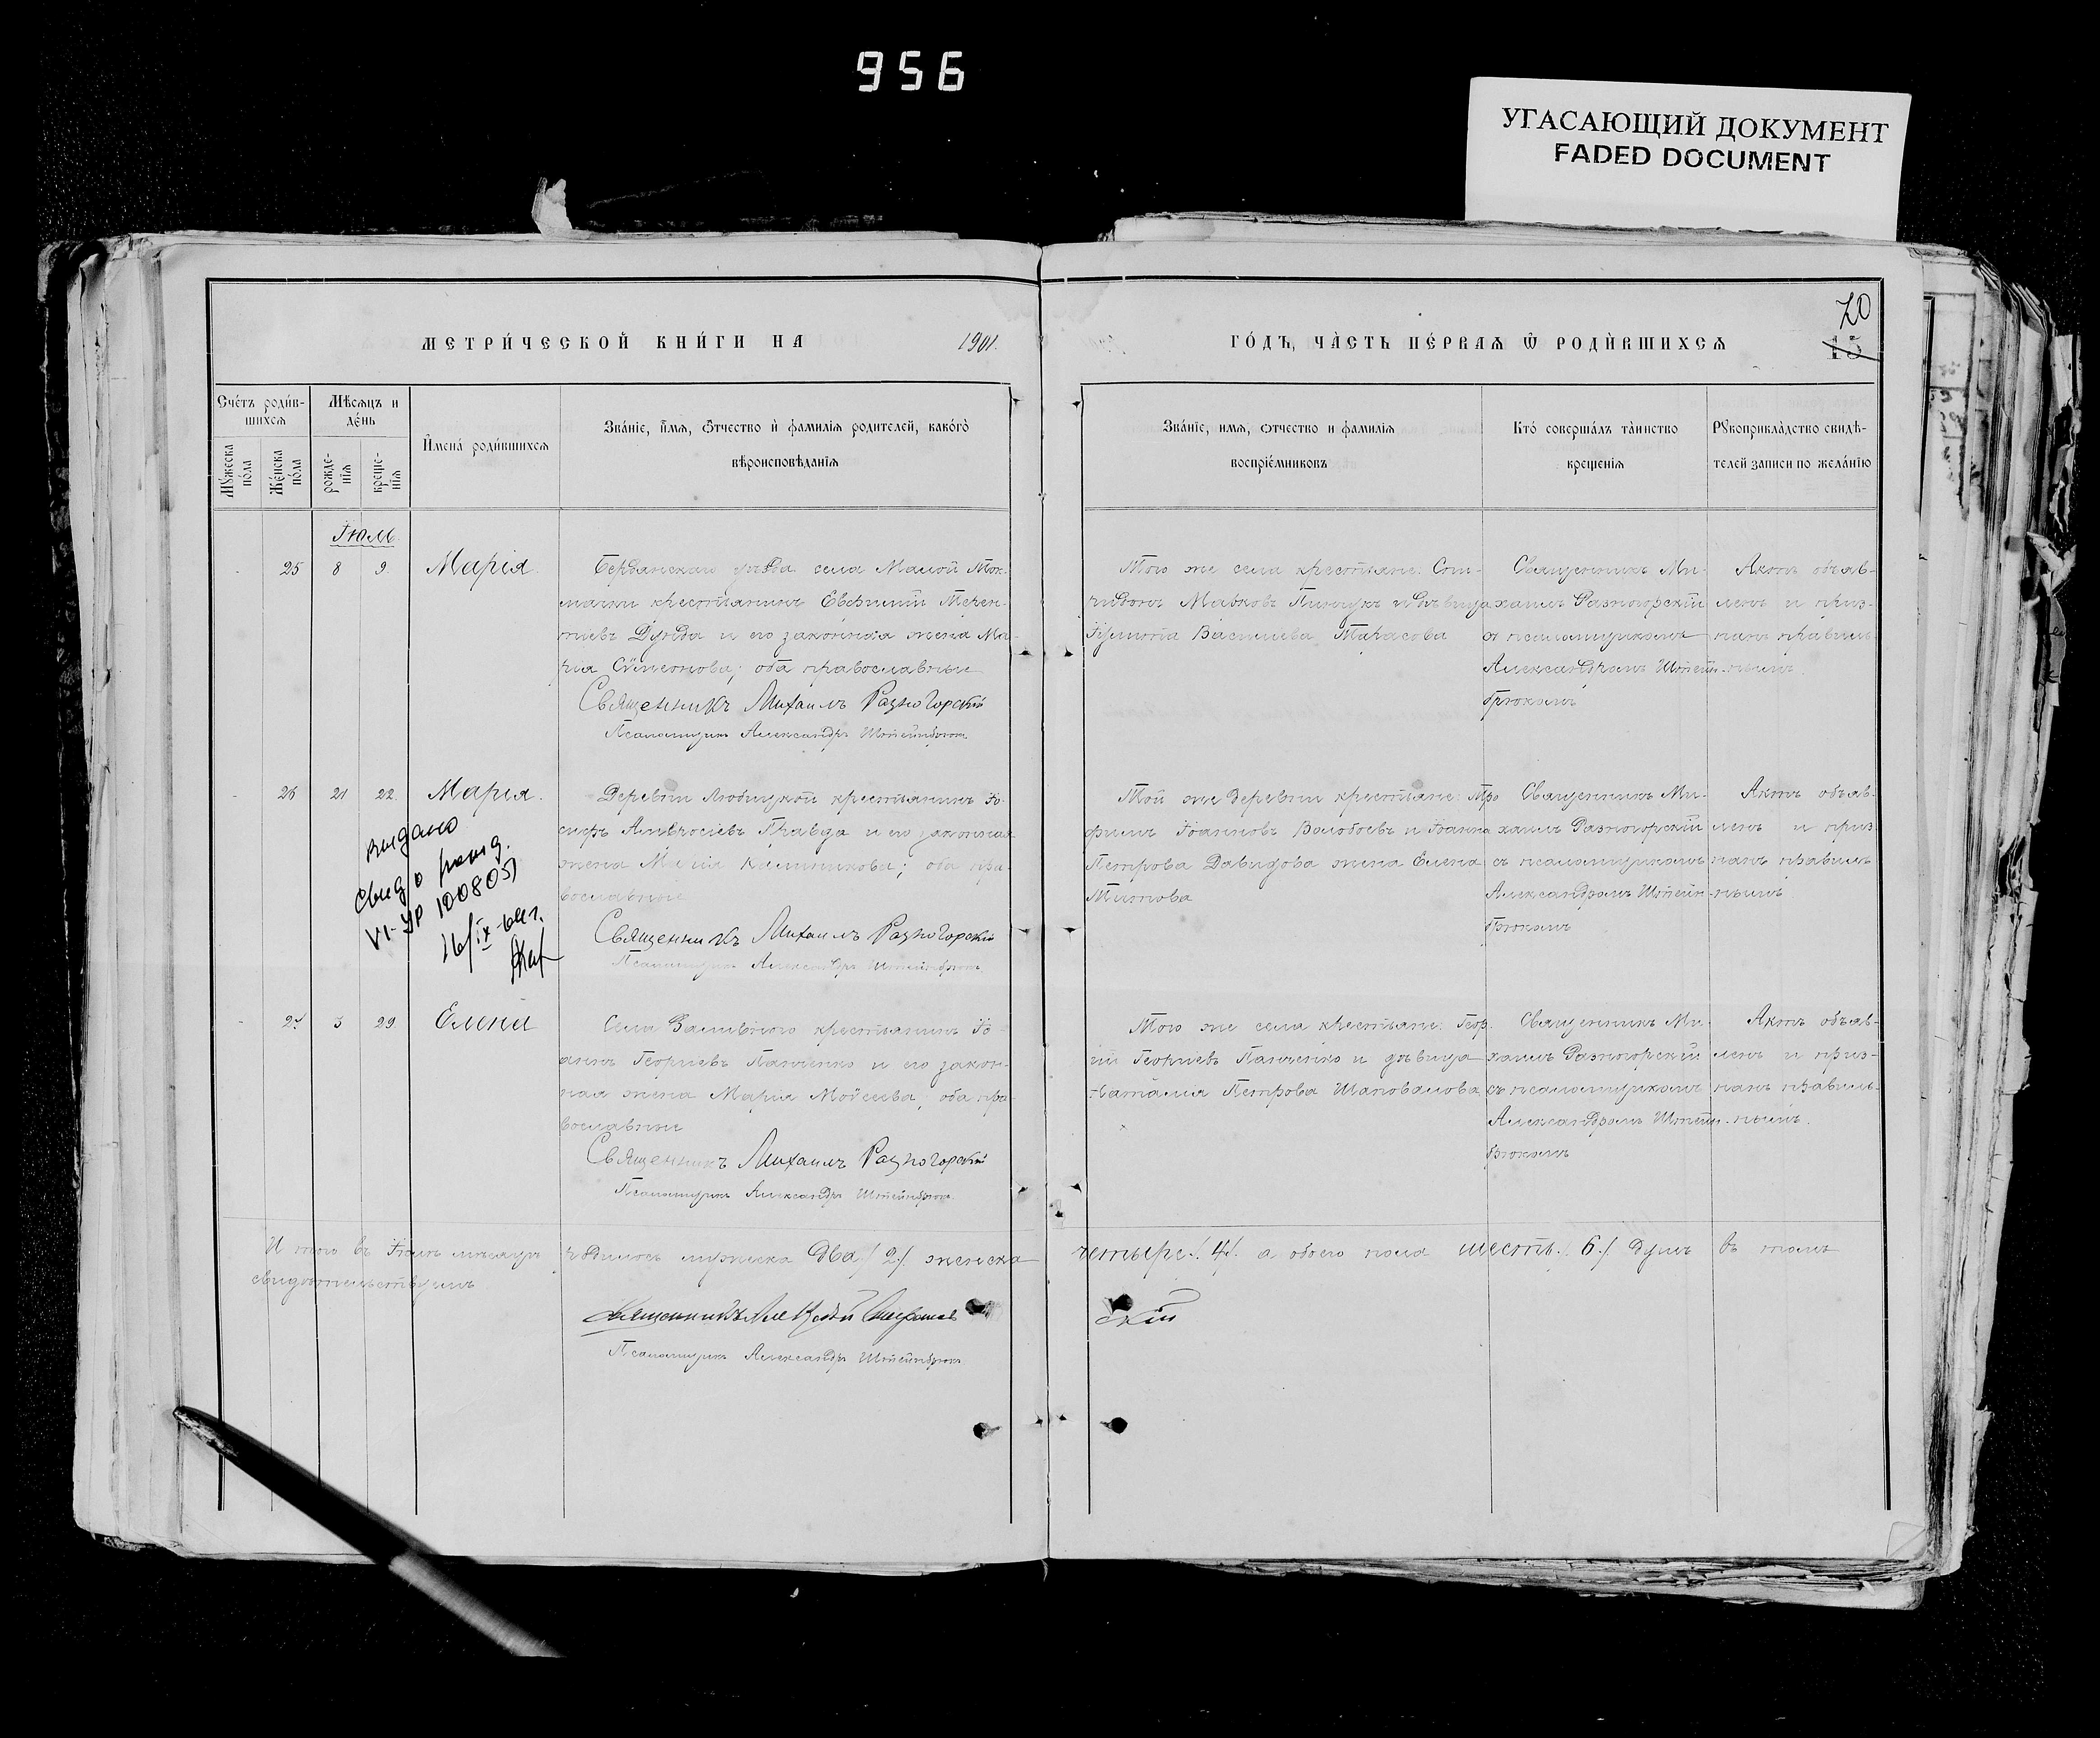 956
УГАСАЮЩИЙ ДОКУМЕНТ
FADED DOCUMENT
МЕТРИ́ЧЕСКОЙ КНИ́ГИ НА 1901.
ГО́ДЪ, ЧА́СТЬ ПЕ́РВАѦ Ѿ РОДИ́ВШИХСѦ
20
15
Сче́тъ роди́в-
шихсѧ
Мѣсяцъ и
де́нь
Мꙋжеска
по́ла
Же́нска
по́ла
рожде-
нїѧ
креще-
нїѧ
И҆мена̀ роди́вшихсѧ
Зва́нїе, и҆́мѧ, ѻ҆́тчество и҆ фамилїѧ родителей, како́го̀
вѣроисповѣ́данїѧ
Зва́нїе, имѧ, ѻтчество и фамилїѧ
воспрїе́мниковъ
Кто̀ соверша́лъ та́инство
крещенїѧ
Рꙋкоприкла́дство свидѣ́-
телей записи по жела́нїю
Іюль.
- 25 8 9. Марія.
Бердянскаго уѣзда села Малой Ток-
мачки крестьянинъ Евфимій Терен-
тіевъ Дунда и его законная жена Ма-
рія Сѵмеонова; оба православные
Священникъ Михаилъ Разногорскій
Псаломщикъ Александръ Штейнбрюкъ
Того же села крестьяне: Спи-
ридонъ Мавковъ Пинчукъ и дѣвица
Васильева Тарасова
Священникъ Ми-
хаилъ Разногорскій
съ псаломщикомъ
Александромъ Штейн-
брюкомъ
Актъ объяв-
ленъ и приз-
нанъ правиль-
нымъ.
- 26 21 22. Марія.
Деревни Любицкой крестьянинъ Іо-
сифъ Амвросіевъ Правда и его законная
жена Марія Калиникова; оба пра-
вославные
Священникъ Михаилъ Разногорскій
Псаломщикъ Александръ Штейнбрюкъ
Той же деревни крестьяне: Тро
фимъ Іоанновъ Волобоевъ и Іоанна
Петрова Давидова жена Елена
Титова
Священникъ Ми-
хаилъ Разногорскій
съ псаломщикомъ
Александромъ Штейн-
брюкомъ
Актъ объяв-
ленъ и приз-
нанъ правиль-
нымъ
выдано
свид о рожд.
VI-ЯР 100805
16/IX-
- 27 29 Елена
Села Заливного крестьянинъ Іо-
аннъ Георгіевъ Панченко и его закон-
ная жена Марія Моисеева; оба пра-
вославные
Священникъ Михаилъ Разногорскій
Псаломщикъ Александръ Штейнбрюкъ.
Того же села крестьяне: Геор-
гій Георгіевъ Панченко и дѣвица
Наталія Петрова Шаповалова
Священникъ Ми-
хаилъ Разногорскій
съ псаломщикомъ
Александромъ Штейн-
брюкомъ
Актъ объяв-
ленъ и приз-
нанъ правиль-
нымъ.
И того въ Іюль мѣсяцѣ родилось мужеска два /2/ женска четыре /4/. а обоего пола шесть /6/ душъ въ томъ
свидѣтельствуемъ
Священникъ Алексѣй скій
Псаломщикъ Александръ Штейнбрюкъ